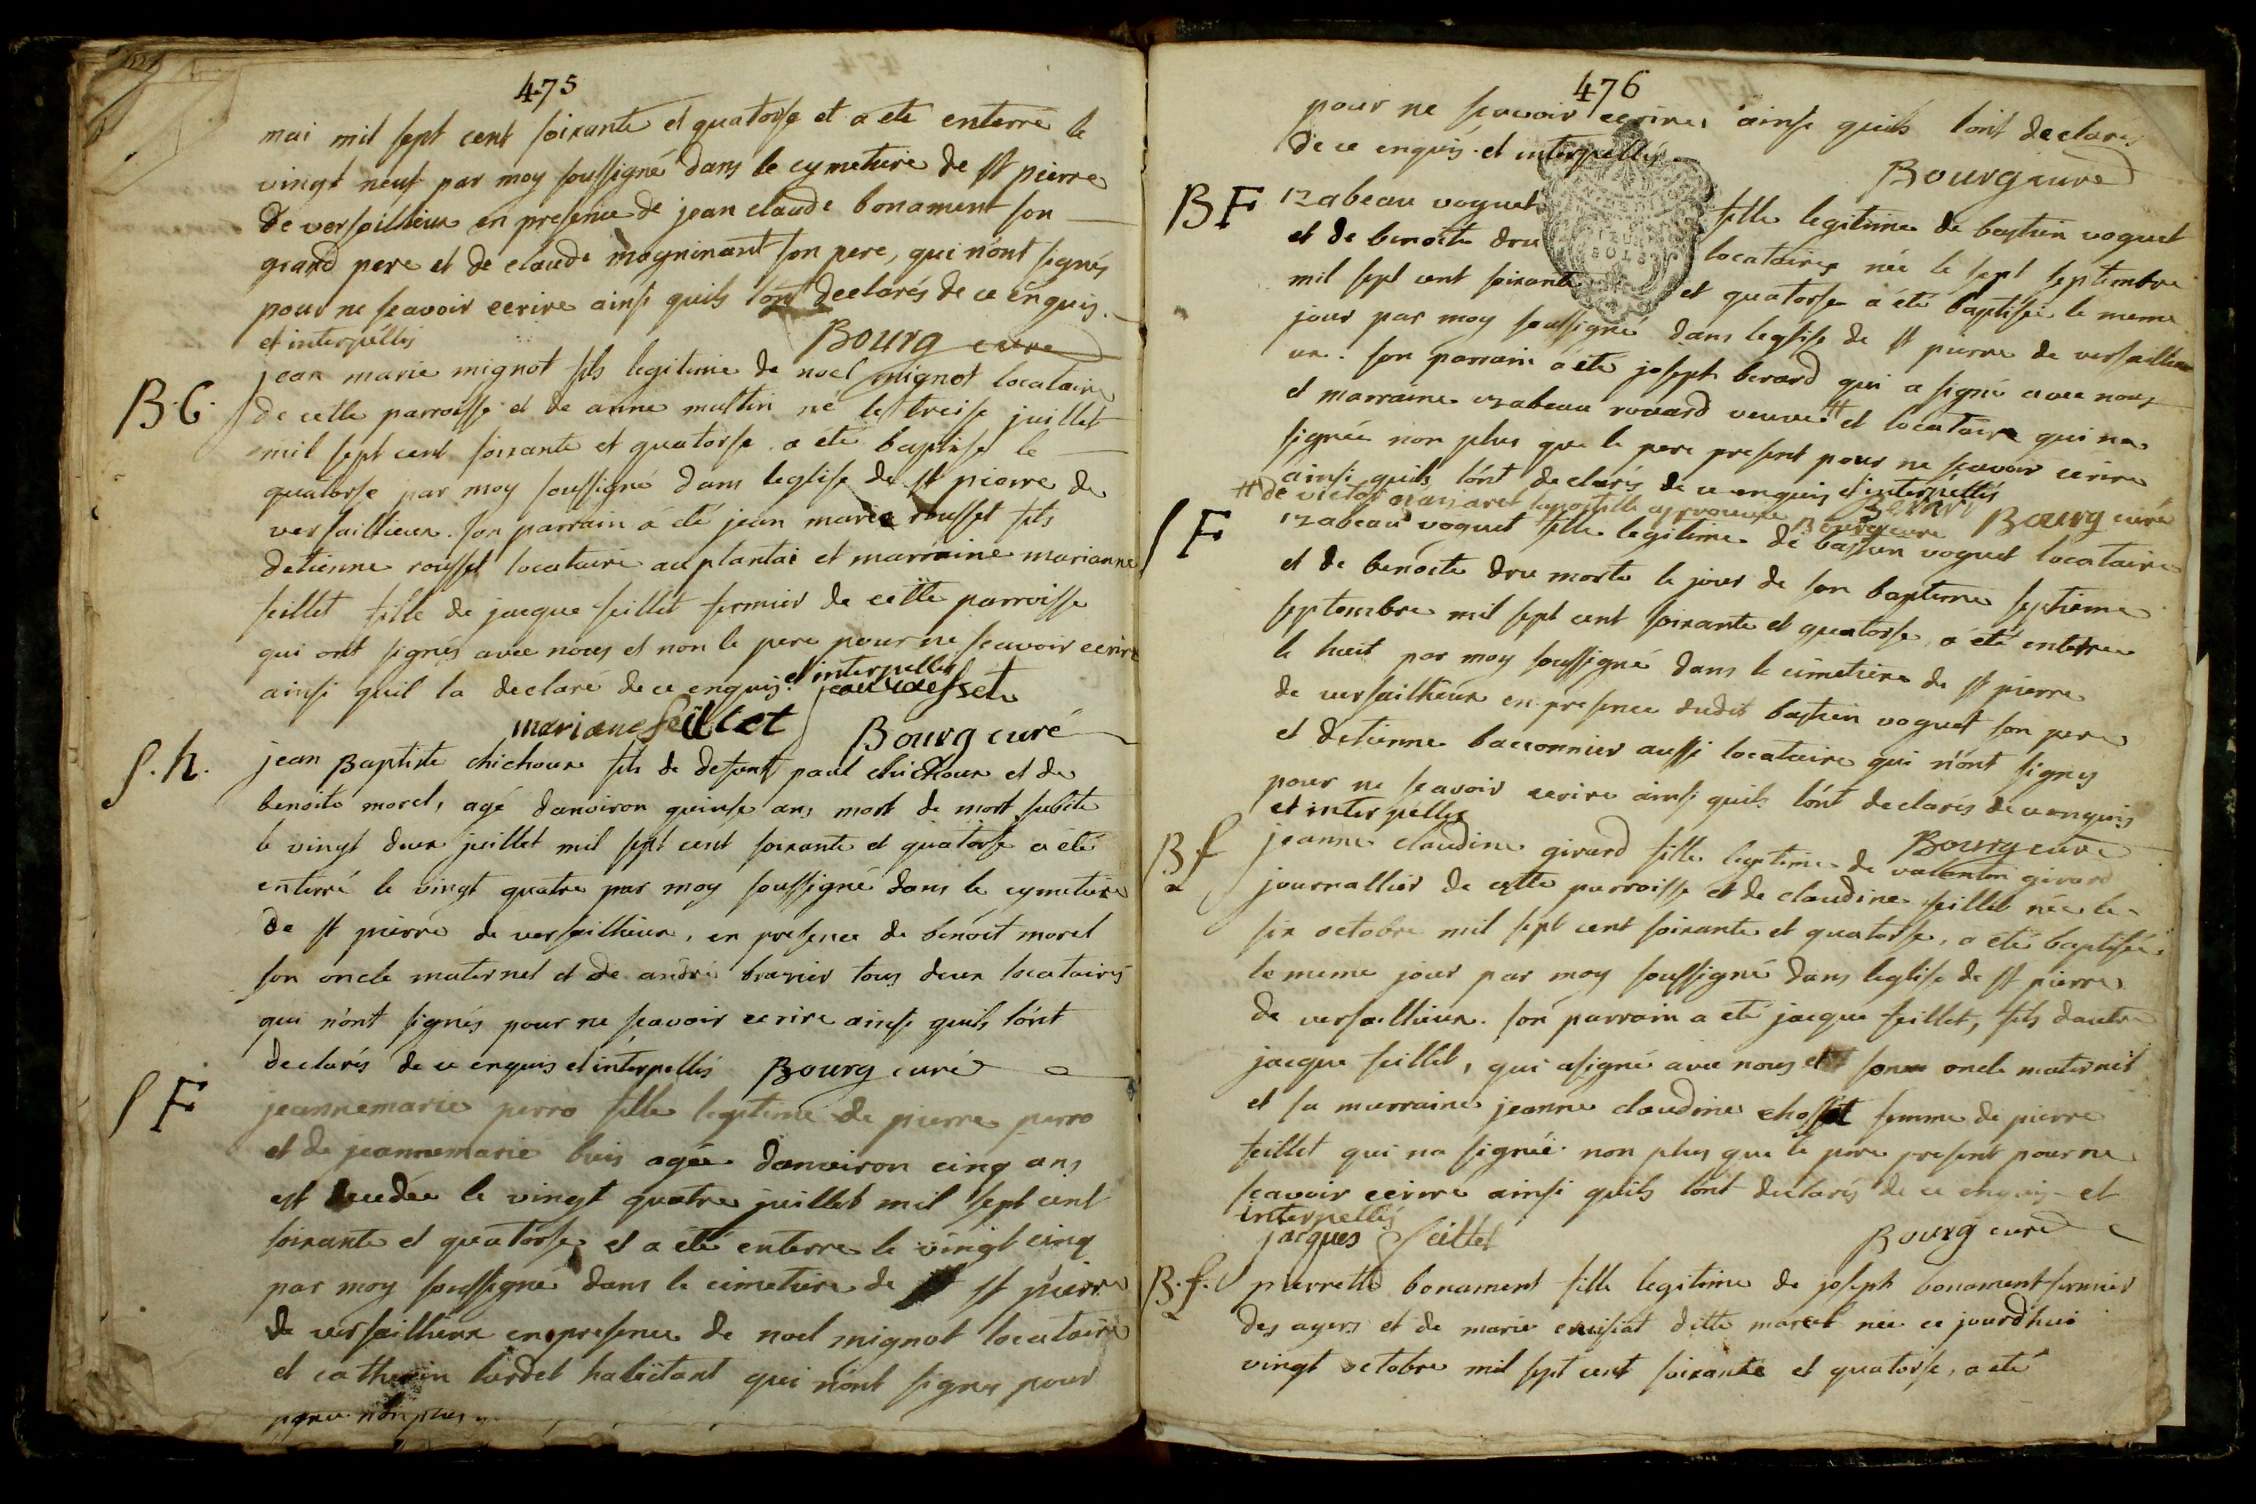 475
mai mil sept cent soixante et quatorse et a eté enterré le
vingt neuf par moy soussigné dans le cymetiere de st pierre
de versaillieux en presence de jean claude bonament son
grand pere et de claude magninant son pere, qui n'ont signés
pour ne scavoir ecrire ainsi quils l'ont declarés de ce enquis
et interpéllés
Bourg curé
B. G.
jean marie mignot fils legitime de noel mignot locataire
de cette parroisse et de anne multin né le treise juillet
mil sept cent soixante et quatorse a été baptise le
quatorse par moy soussigné dans leglise de st pierre de
versaillieux. son parrain a été jean marie rousset fils
detienne rousset locataire au plantai et marraine marianne
feillet fille de jacque feillet fermier de cette parroisse
qui ont signés avec nous et non le pere pour ne scavoir ecrire
ainsi quil la declaré de ce enquis et interpellés
jean rousset
mariane feillet
Bourg curé
S. h.
jean Baptiste chichoux fils de defunt paul chichoux et de
benoite morel, agé danviron quinse ans mort de mort subite
le vingt deux juillet mil sept cent soixante et quatorse a eté
enterré le vingt quatre par moy soussigné dans le cymetiere
de st pierre de versaillieux, en presence de benoit morel
son oncle maternel et de andré brazier tous deux locataires
qui n'ont signés pour ne scavoir ecrire ainsi quils l'ont
declarés de ce enquis et interpellés Bourg curé
S F
jeannemarie perro fille legitime de pierre perro
et de jeannemarie buis agée danviron cinq ans
est decedée le vingt quatre juillet mil sept cent
soixante et quatorse et a été enterre le vingt cinq
par moy soussigné dans le cimetiere de st pierre
de versaillieux en presence de noel mignot locataire
et catherin lardet habitant qui n'ont signes pour
476
pour ne scavoir ecrire, ainsi quils l'ont declarés
de ce enquis et interpellés
Bourg curé
B F
izabeau voguet fille legitime de bastien voguet
et de benoite dru locataires née le sept septembre
mil sept cent soixante et quatorse a été baptisée le meme
jour par moy soussigné dans leglise de st pierre de versaillieux
son parrain a eté joseph berard qui a signé avec nous
et marraine izabeau rouard veuve # et locataire qui na
signée non plus que le pere present pour ne scavoir ecrire
ainsi quils l'ont declarés de ce enquis et interpéllés
# de victor lapostille approuvée Bourg curé
Berard
Bourg curé
S F
izabeau voguet fille legitime de bastien voguet locataire
et de benoite dru morte le jour de son bapteme septieme
septembre mil sept cent soixante et quatorse, a été enterrée
le huit par moy soussigné dans le cimetiere de st pierre
de versaillieux en presence dudit bastien voguet son pere
et detienne baconnier aussi locataire qui n'ont signes
pour ne scavoir ecrire ainsi quils l'ont declarés de ce enquis
et interpellés
Bourg curé
B f
jeanne claudine girard fille legitime de valentin girard
journallier de cette parroisse et de claudine feillet née le
six octobre mil sept cent soixante et quatorse, a été baptisée
le meme jour par moy soussigné dans leglise de st pierre
de versaillieux. son parrain a eté jacque feillet, fils dautre
jacque feillet, qui a signé avec nous et son oncle maternel
et sa marraine jeanne claudine chosset femme de pierre
feillet qui na signée non plus que le pere present pour ne
scavoir ecrire ainsi quils l'ont declarés de ce enquis et
interpellés
jacques feillet
Bourg curé
B. f.
pierrette bonament fille legitime de joseph bonament fermier
des ayers et de marie cruisiat ditte marcel née ce jourdhui
vingt octobre mil sept cent soixante et quatorse, a eté